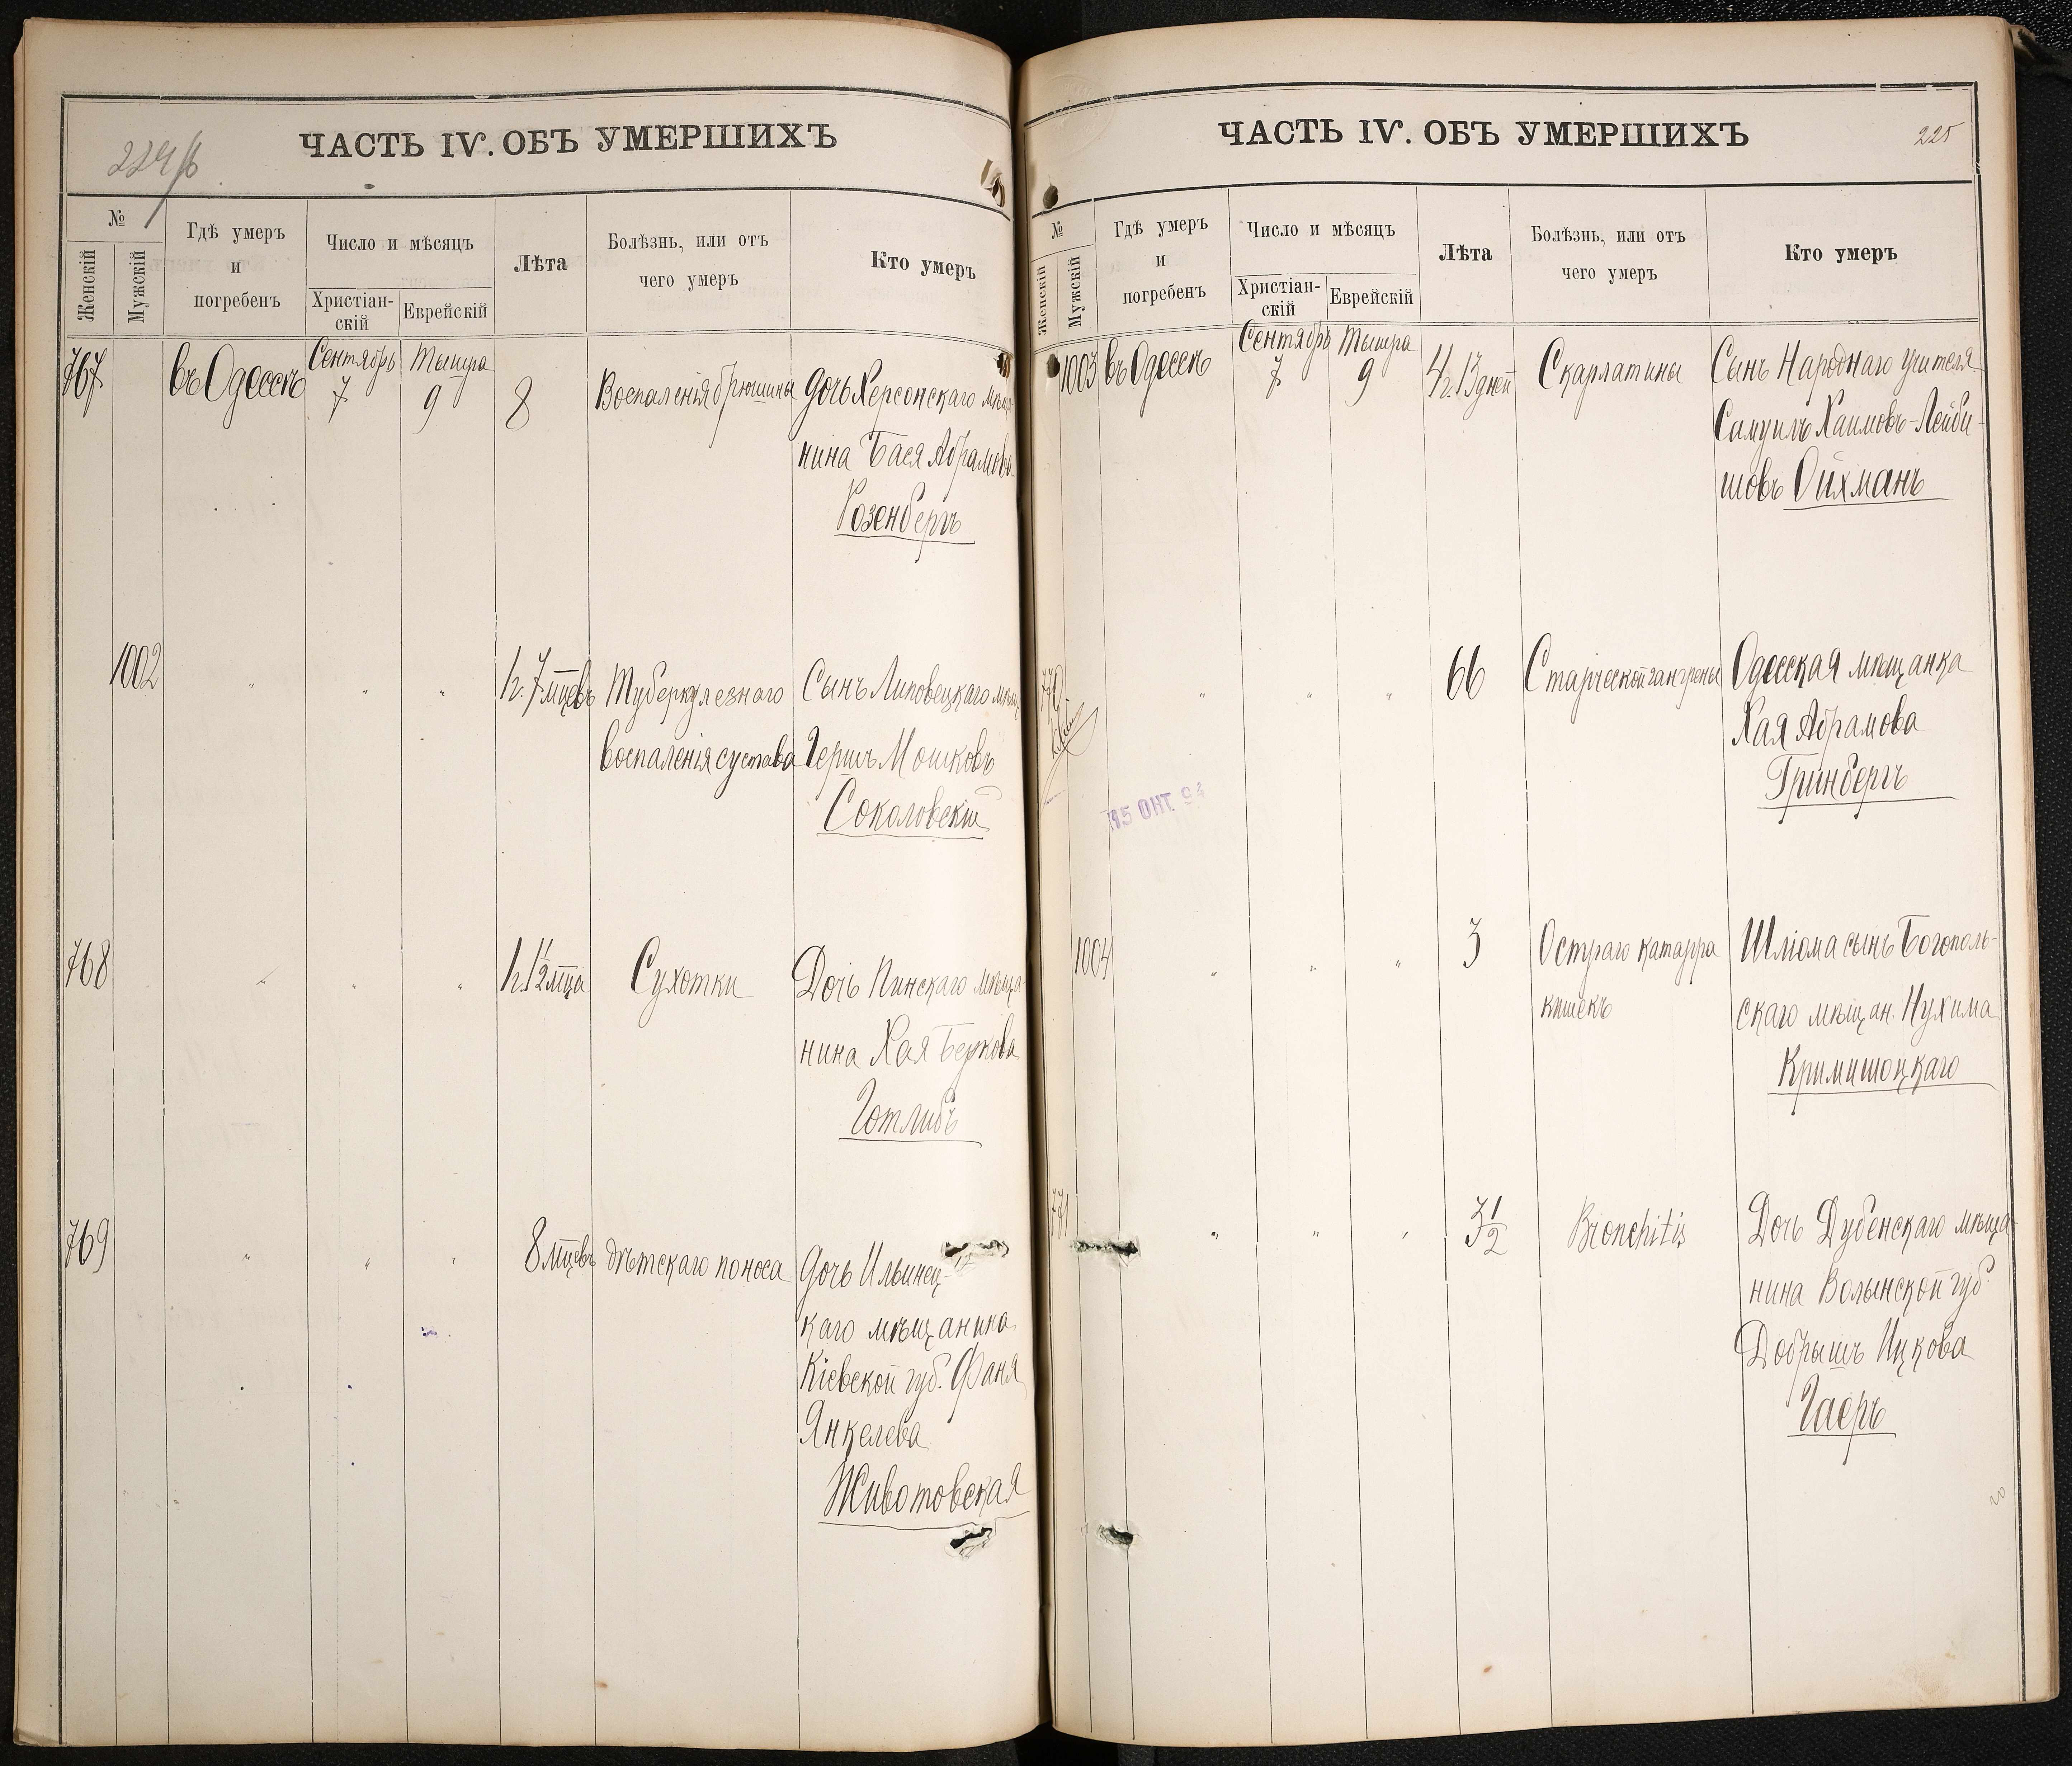 ЧАСТЬ IV. ОБЪ УМЕРШИХЪ
№
Женскій
Мужскій
Гдѣ умеръ
и
погребенъ
Число и мѣсяцъ
Христіан-
скій
Еврейскій
Лѣта
Болѣзнь, или отъ
чего умеръ
Кто умеръ
767
въ Одессѣ
Сентябрь
7
Тышра
9
8
Воспаленія брюшины
Дочь Херсонскаго мѣща-
нина Бася Абрамова
Розенбергъ
1002
" " "
1г. 7 мцевъ
Туберкулезнаго
воспаленія сустава
Сынъ Липовецкаго мѣщ.
Гершъ Мошковъ
Соколовскій
768
" " "
1г. 1½ мца
Сухотки
Дочь Пинскаго мѣща-
нина Хая Беркова
Готлибъ
769
" " "
8 мцевъ
дѣтскаго поноса
Дочь Ильинец-
каго мѣщанина
Кіевской губ. Фаня
Янкелева
Животовская
ЧАСТЬ IV. ОБЪ УМЕРШИХЪ
225
№
Женскій
Мужскій
Гдѣ умеръ
и
погребенъ
Число и мѣсяцъ
Христіан-
скій
Еврейскій
Лѣта
Болѣзнь, или отъ
чего умеръ
Кто умеръ
1003
въ Одессѣ
Сентябрь
7
Тышра
9
4г. 13 дней
Скарлатины
Сынъ Народнаго учителя
Самуилъ Хаимовъ-Лейби-
шовъ Ойхманъ
770
" " "
66
Старческой гангрены
Одесская мѣщанка
Хая Абрамова
Гринбергъ
15 ОКТ. 94
1004
" " "
3
Остраго катарра
кишекъ
Шліома сынъ Богополь-
скаго мѣщан. Нухима
Кримишоцкаго
771
" " "
3½
Bronchitis
Дочь Дубенскаго мѣща-
нина Волынской губ.
Добрышъ Ицкова
Гаеръ